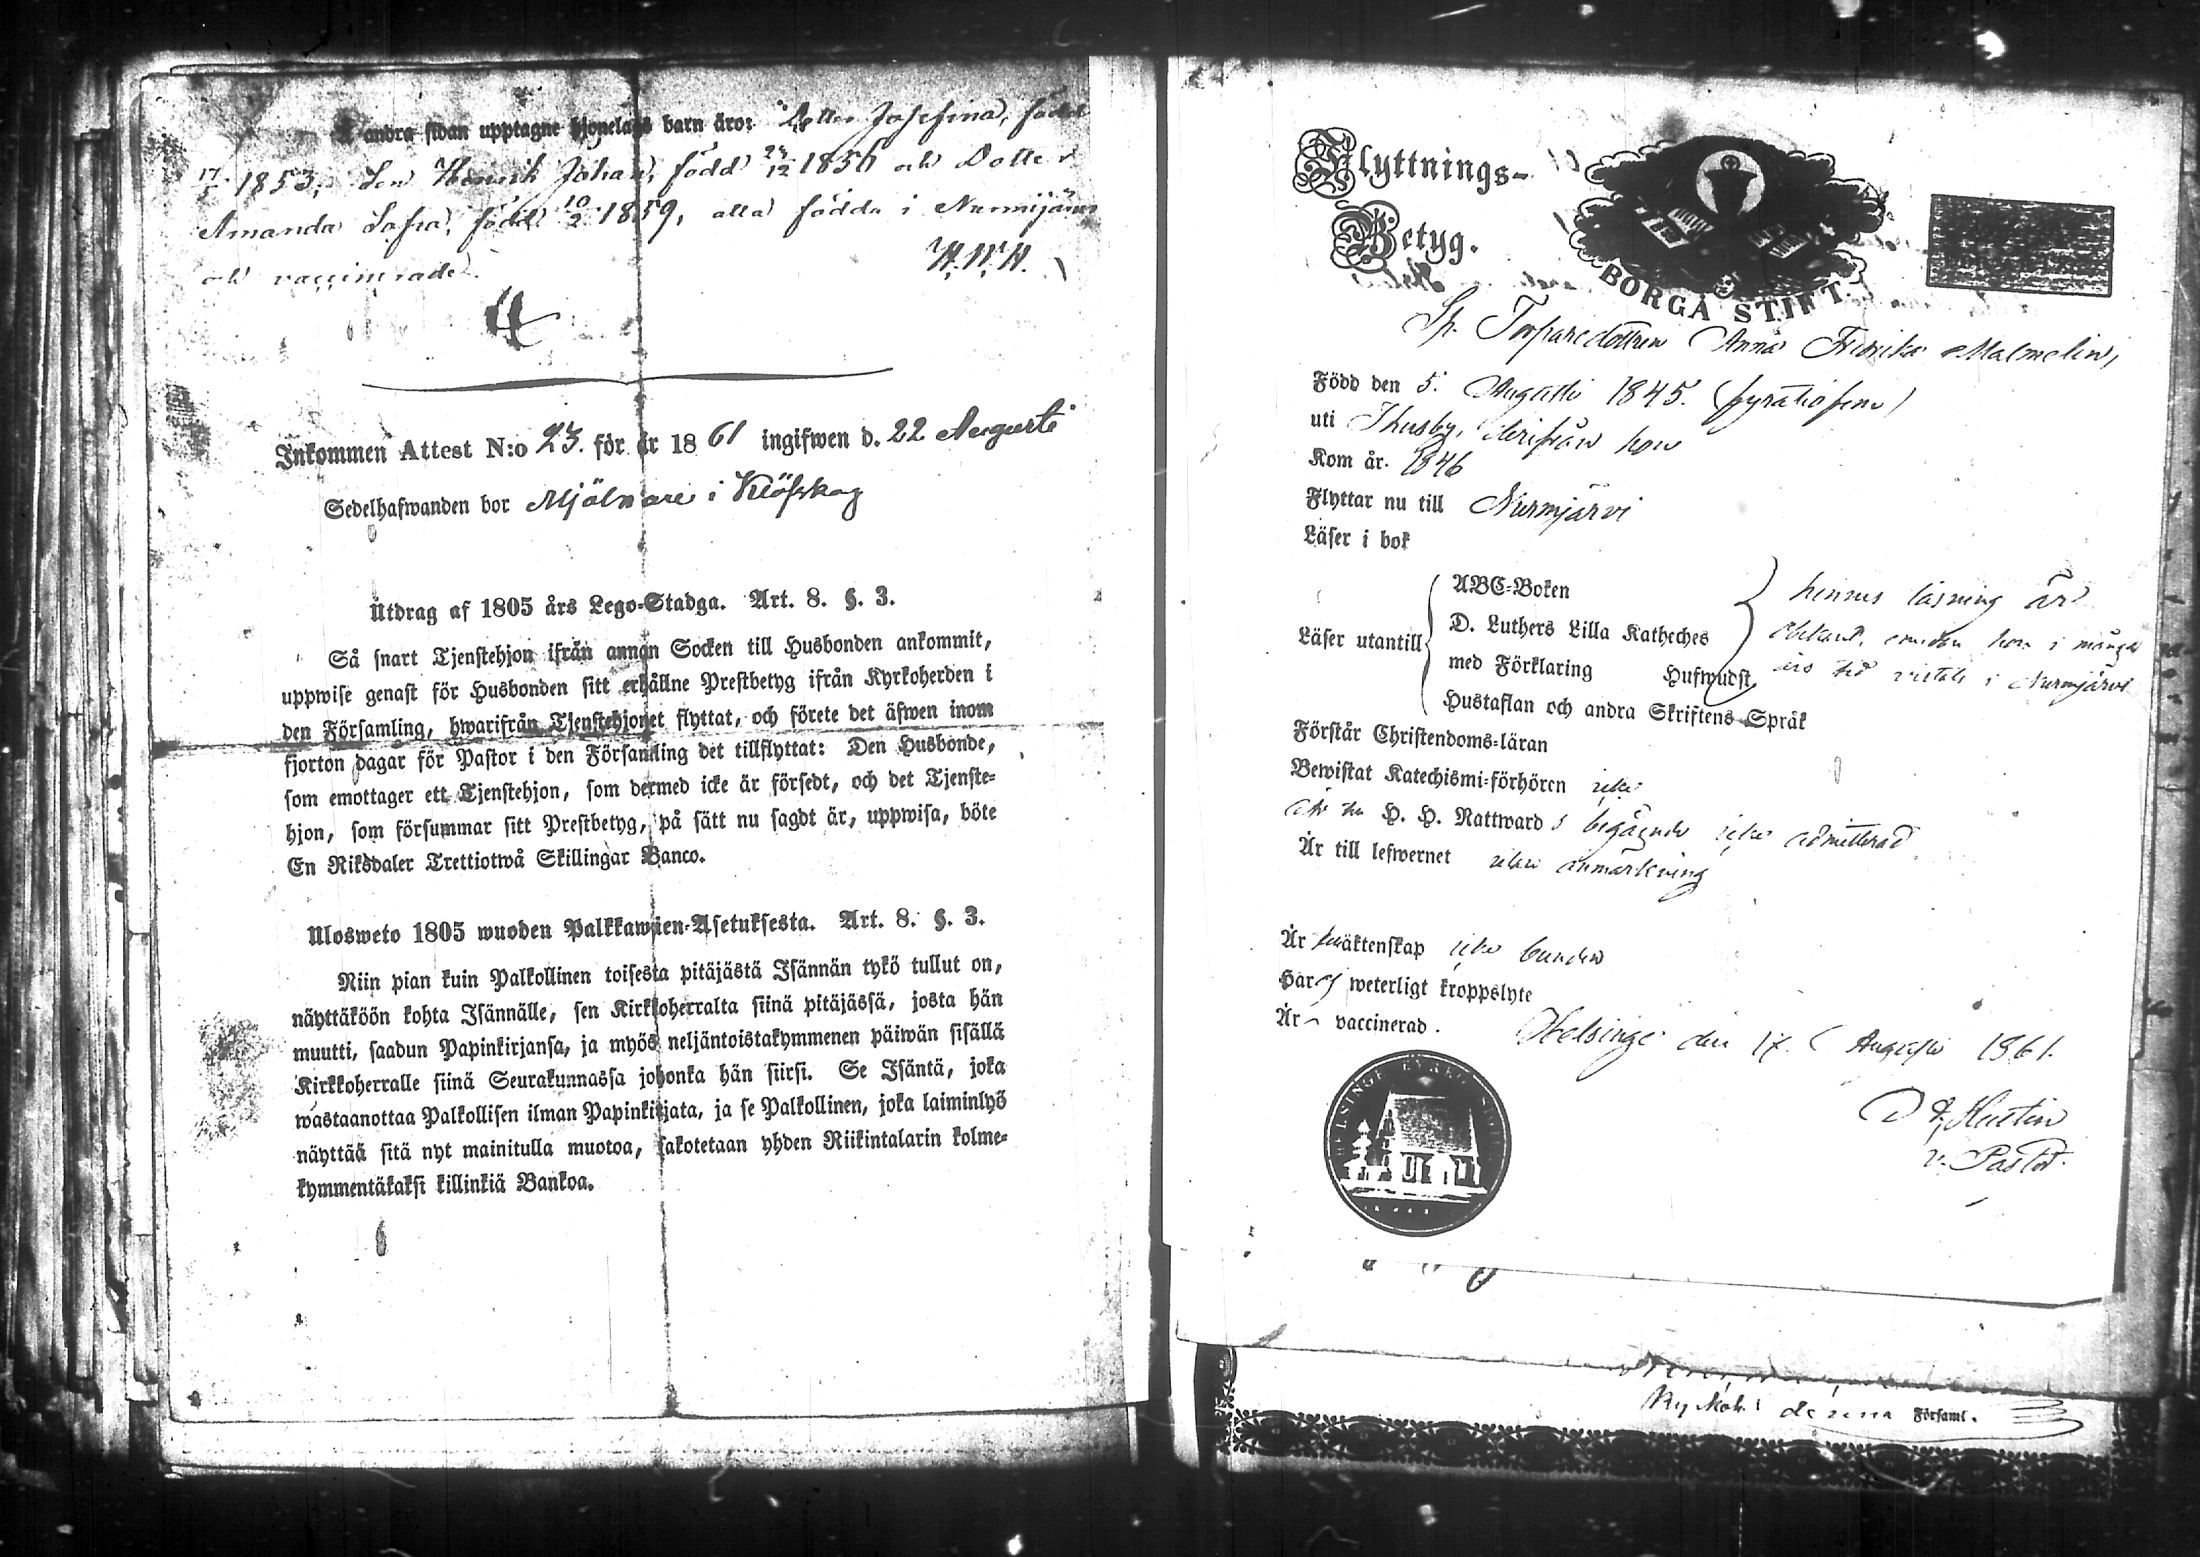 andra sidan upptagne hjonelags barn äro: Dotter Josefina, född
17/5 1853, Son Henrik Johan, född 24/12 1856 och Dotter
Amanda Sofia, född 10/2 1859, alla födda i Nurmijärvi
och vaccinerade.
Inkommen Attest N:o 23. för år 1861 ingifwen d. 22 Augusti
Sedelhafwanden bor Mjölnare i Klöfskog
Utdrag af 1805 års Lego-Stadga. Art. 8. §. 3.
Så snart Tjenstehjon ifrån annan Socken till Husbonden ankommit,
uppwise genast för Husbonden sitt erhållne Prestbetyg ifrån Kyrkoherden i
den Församling, hwarifrån Tjenstehjonet flyttat, och förete det äfwen inom
fjorton dagar för Pastor i den Församling det tillflyttat: Den Husbonde,
som emottager ett Tjenstehjon, som dermed icke är försedt, och det Tjenste-
hjon, som försummar sitt Prestbetyg, på sätt nu sagdt är, uppwisa, böte
En Riksdaler Trettiotwå Skillingar Banco.
Ulosweto 1805 wuoden Palkkawäen-Asetuksesta. Art. 8. §. 3.
Niin pian kuin Palkollinen toisesta pitäjästä Isännän tykö tullut on,
näyttäköön kohta Isännälle, sen Kirkkoherralta siinä pitäjässä, josta hän
muutti, saadun Papinkirjansa, ja myös neljäntoistakymmenen päiwän sisällä
Kirkkoherralle siinä Seurakunnassa johonka hän siirsi. Se Isäntä, joka
wastaanottaa Palkollisen ilman Papinkirjata, ja se Palkollinen, joka laiminlyö
näyttää sitä nyt mainitulla muotoa, sakotetaan yhden Riikintalarin kolme-
kymmentäkaksi killinkiä Bankoa.
Flyttnings-
Betyg.
BORGÅ STIFT.
Torparedottren Anna Fredrika Malmelin,
Född den 5. Augusti 1845. (fyratiofem)
uti Thusby, derifrån hon
Kom år. 1846
Flyttar nu till Nurmijärvi
Läser i bok
ABC-Boken
hennes läsning är
D. Luthers Lilla Katheches
obekant, emedan hon i många
Läser utantill
med Förklaring Hufwudst.
års tid vistats i Nurmijärvi
Hustaflan och andra Skriftens Språk
Förstår Christendoms-läran
Bewistat Katechismi-förhören icke
H. H. Nattwards begående icke admitterad
Är till lefwernet utan anmärkning
Är äktenskap icke bunden
Har ej weterligt kroppslyte
Är vaccinerad.
Helsinge den 17. Augusti 1861.
v. Pastor.
denna Församl.